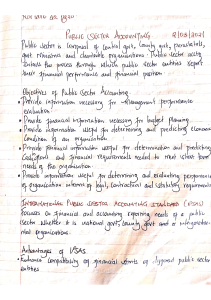 PUBLIC SECTOR ACCOUNTING
Public sector is composed of central govt, county govt, parastatals,
and charitable organisations. Public sector acctg
is the process through which public sector entities report
their financial performance and financial position.
Objectives of Public Sector Accounting
• Provide information necessary for performance
evaluation
• Provide financial information necessary for budget planning
• Provide information useful for determining and predicting economic
condition of an organisation
• Provide financial information useful for determination and predicting
and financial requirements needed to meet short term
needs of the organisation.
• Provide information useful for determining and evaluating performance
of organisation in terms of legal, contractual and statutory requirements
INTERNATIONAL PUBLIC SECTOR ACCOUNTING STANDARDS (IPSAS)
Focuses on financial and accounting reporting needs of a public
sector whether it is national govt, county govt and
organisations.
Advantages of IPSAS.
• Enhance comparability of financial of public sector
entities